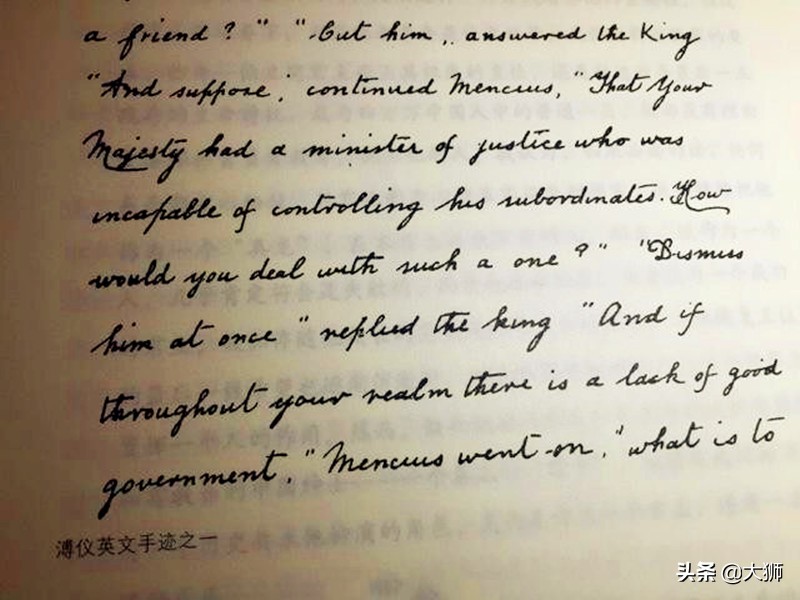 a friend?" "Cut him, answered the King
"And suppose", continued Mencius, "That Your
Majesty had a minister of justice who was
incapable of controlling his subordinates. How
would you deal with such a one?" "Dismiss
him at once" replied the king "And if
throughout your realm there is a lack of good
government," Mencius went on, "what is to
溥仪英文手迹之一
头条 @大狮